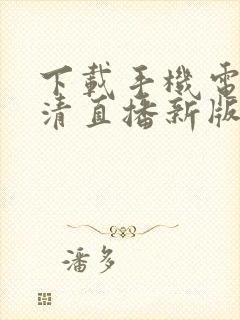 下載手機電
清直播新版
潘多